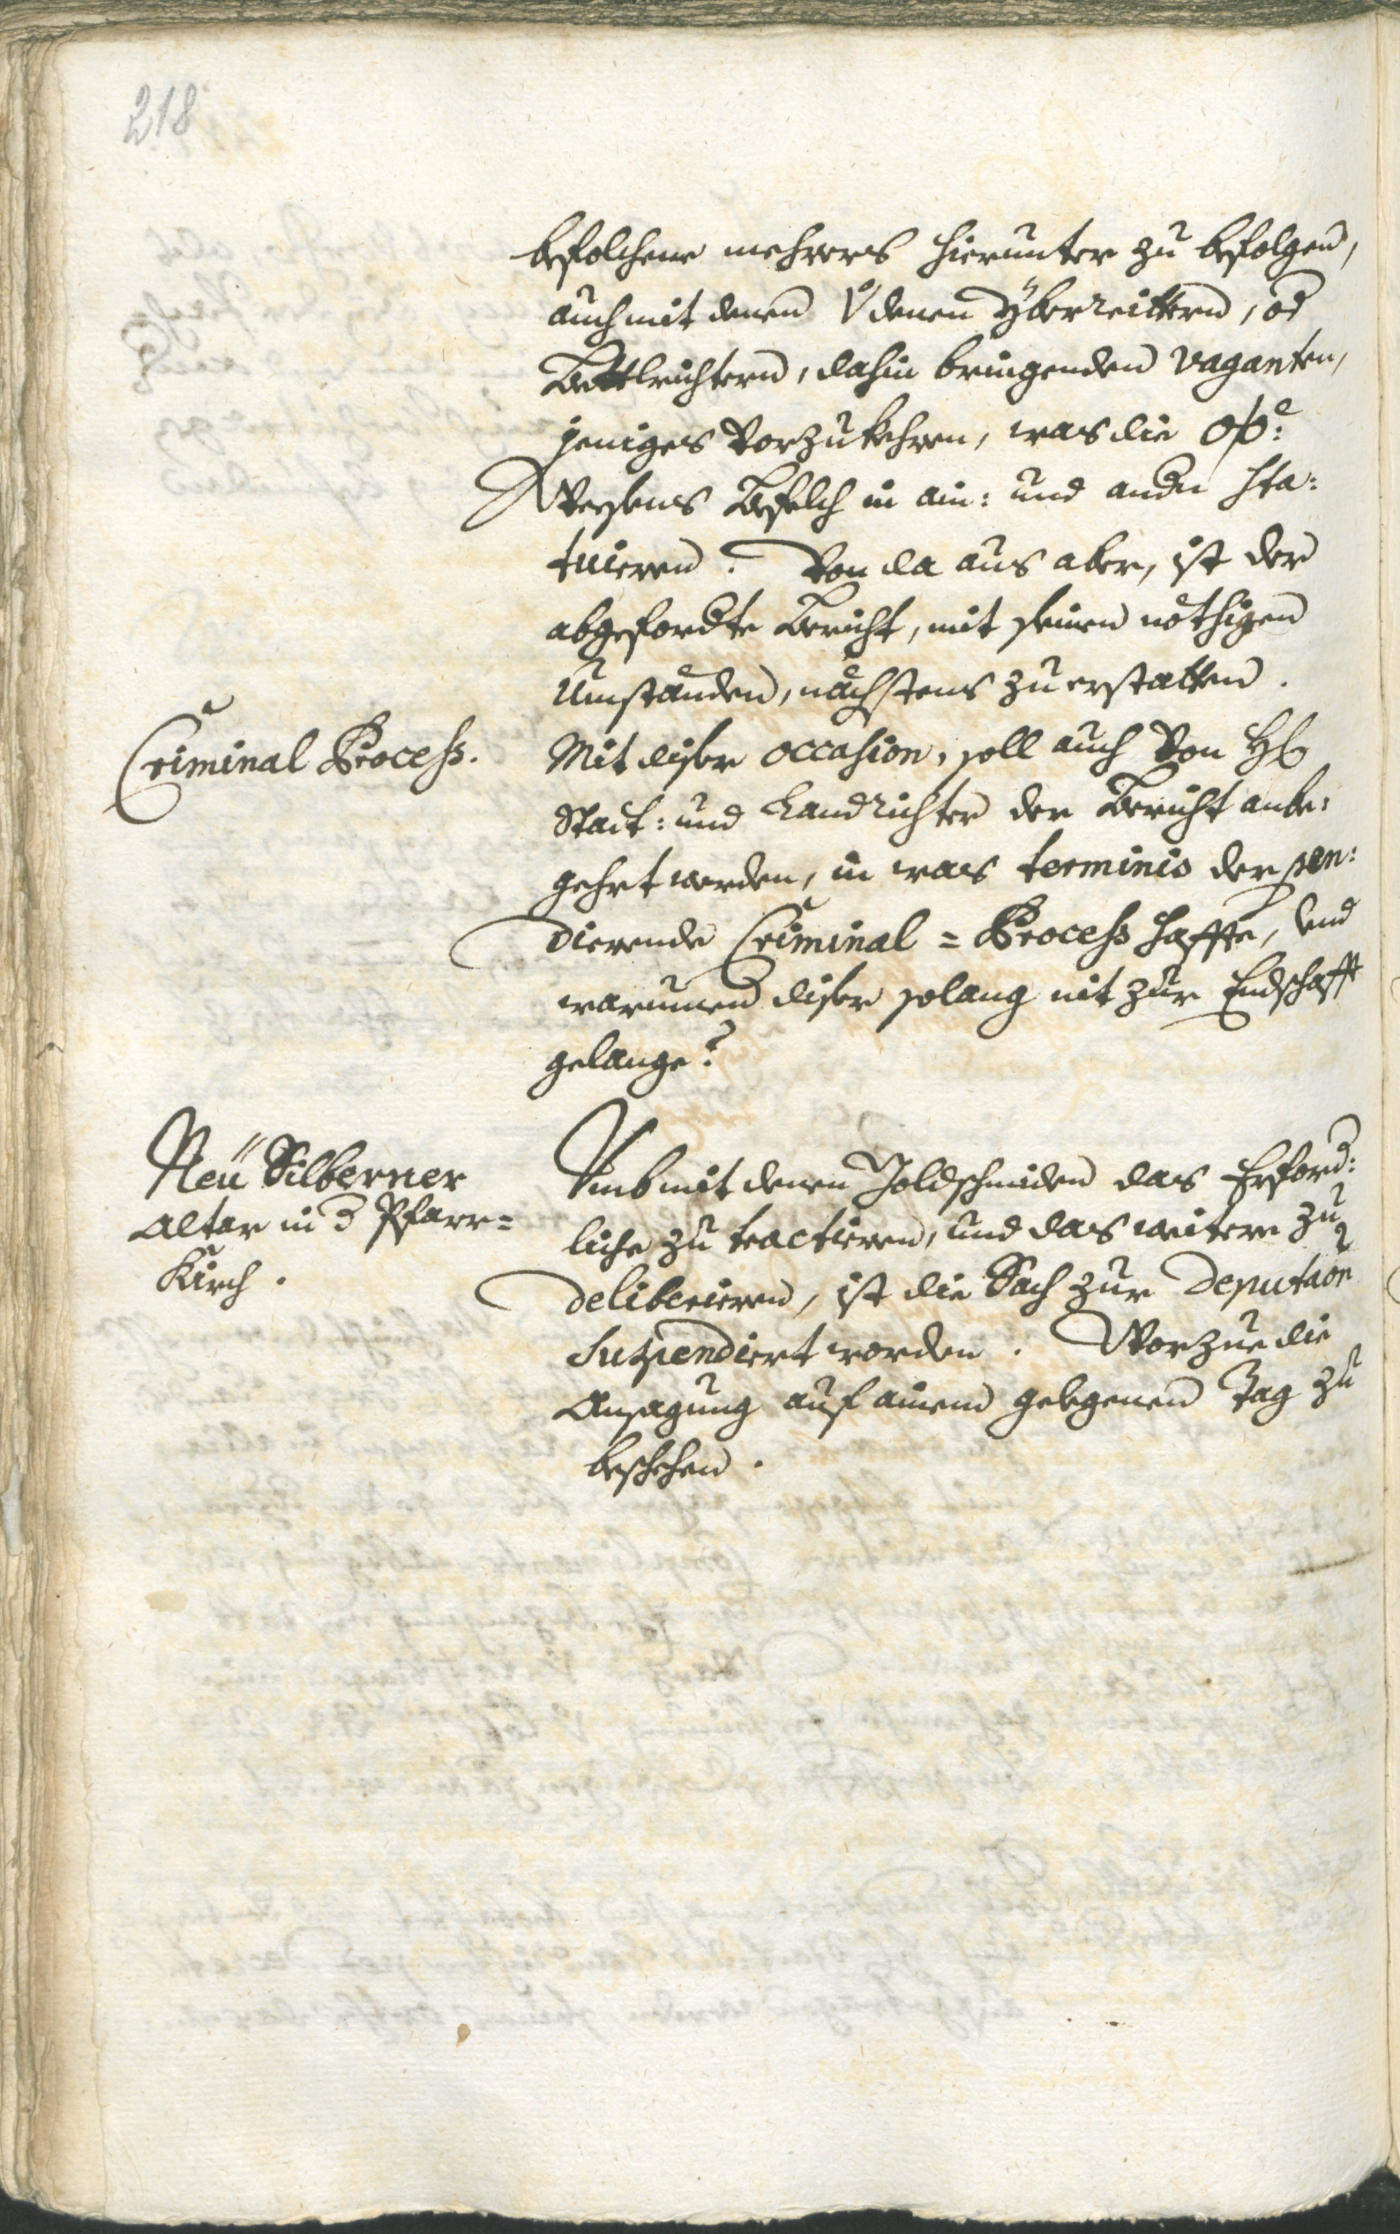 218
befolchene mehrers hierunter zu befolgen,
auch mit denen v̊ denen Yberreittern, od
Bettlrichtern, dahin bringenden vaganten,
jeniges vorzukehren, was die
Weesens Befelch in ain: und andn sta:
tuieren. Von da aus aber, ist der
abgefordte Bericht, mit seinen nöthigen
Umständen, nächstens zu erstatten.
Criminal Process.
Mit diser occasion, soll auch von H
Statt: und Landrichter der Bericht anbe:
gehrt werden, in was terminis der pen:
dierende Criminal = Process haffte, und
warumen diser solang nit zur Endschafft
gelange?
Neü Silberner
Altar in d Pfarr=
Kirch.
Umb mit denen Goldschmiden das Erford:
liche zu tractieren, und das weitere zu
deliberieren, ist die Sach zur Deputaon
suspendiert worden. Worzue die
Ansagung auf ainen gelegenen Tag zu
beschehen.